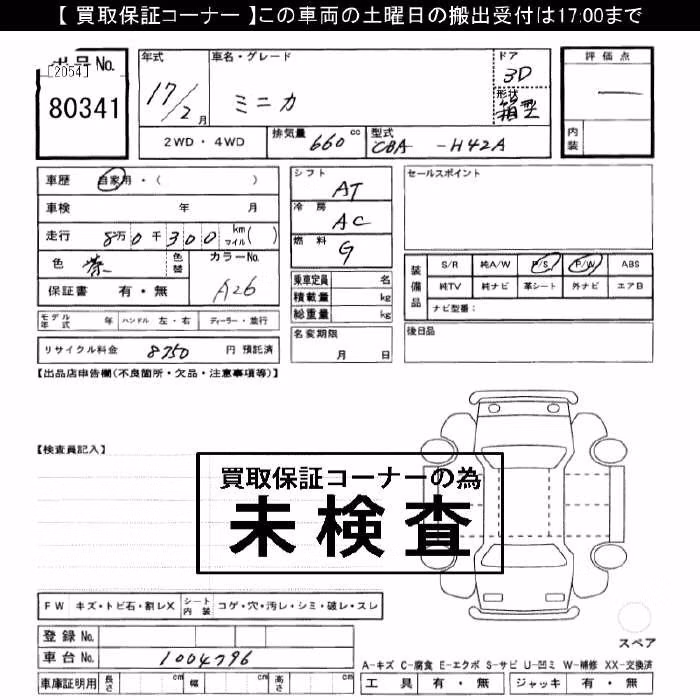 【 買取保証コーナー 】この車両の土曜日の搬出受付は17:00まで
[2054]
80341
年式 17/2月
車名・グレード ミニカ
ドア 3D
形状 箱型
評価点 —
内装
2WD・4WD
排気量 660 cc
型式 CBA-H42A
車歴 自家用・( )
車検 年 月
走行 8万0千300 km マイル( )
色 茶 色替
カラーNo. A26
保証書 有・無
シフト AT
冷房 AC
燃料 G
乗車定員 名
積載量 kg
総重量 kg
セールスポイント
装備品
S/R 純A/W P/S P/W ABS
純TV 純ナビ 革シート 外ナビ エアB
ナビ型番：
モデル年式 年 ハンドル 左・右 ディーラー・並行
リサイクル料金 8750 円 預託済
名変期限 月 日
後日品
【出品店申告欄(不良箇所・欠品・注意事項等)】
【検査員記入】
買取保証コーナーの為
未検査
FW キズ・トビ石・割レX
シート内装 コゲ・穴・汚レ・シミ・破レ・スレ
登録No.
車台No. 1004796
車庫証明用 長さ cm 幅 cm 高さ cm
スペア
A-キズ C-腐食 E-エクボ S-サビ U-凹ミ W-補修 XX-交換済
工具 有・無 ジャッキ 有・無